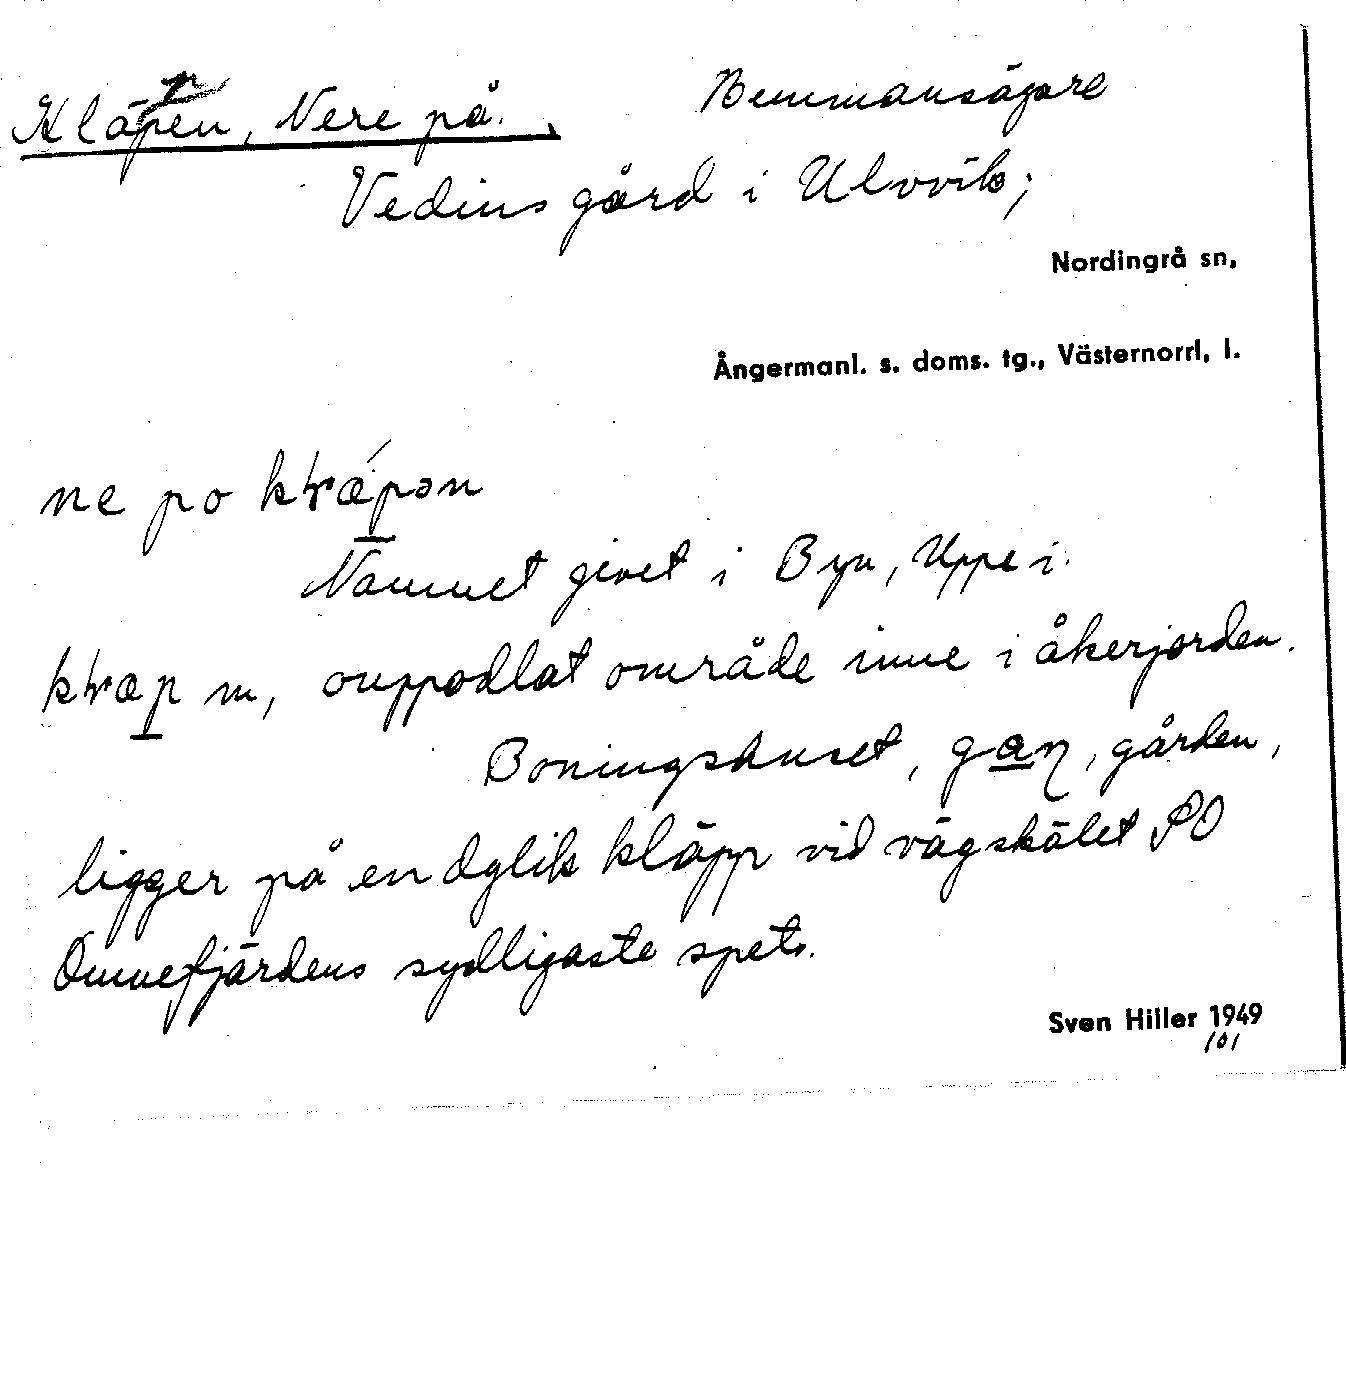 Kläppen, Nere på. Hemmansägare
Vedins gård i Ulvvik;
Nordingrå sn,
Ångermanl. s. doms. tg., Västernorrl. l.
ne po
Namnet givet i Byn, Uppe i.
m, ouppodlat område inne i åkerjorden.
Boningshuset, gaɳ, gården,
ligger på en dylik kläpp vid vägskälet SO
Omnefjärdens sydligaste spets.
Sven Hiller 1949
101